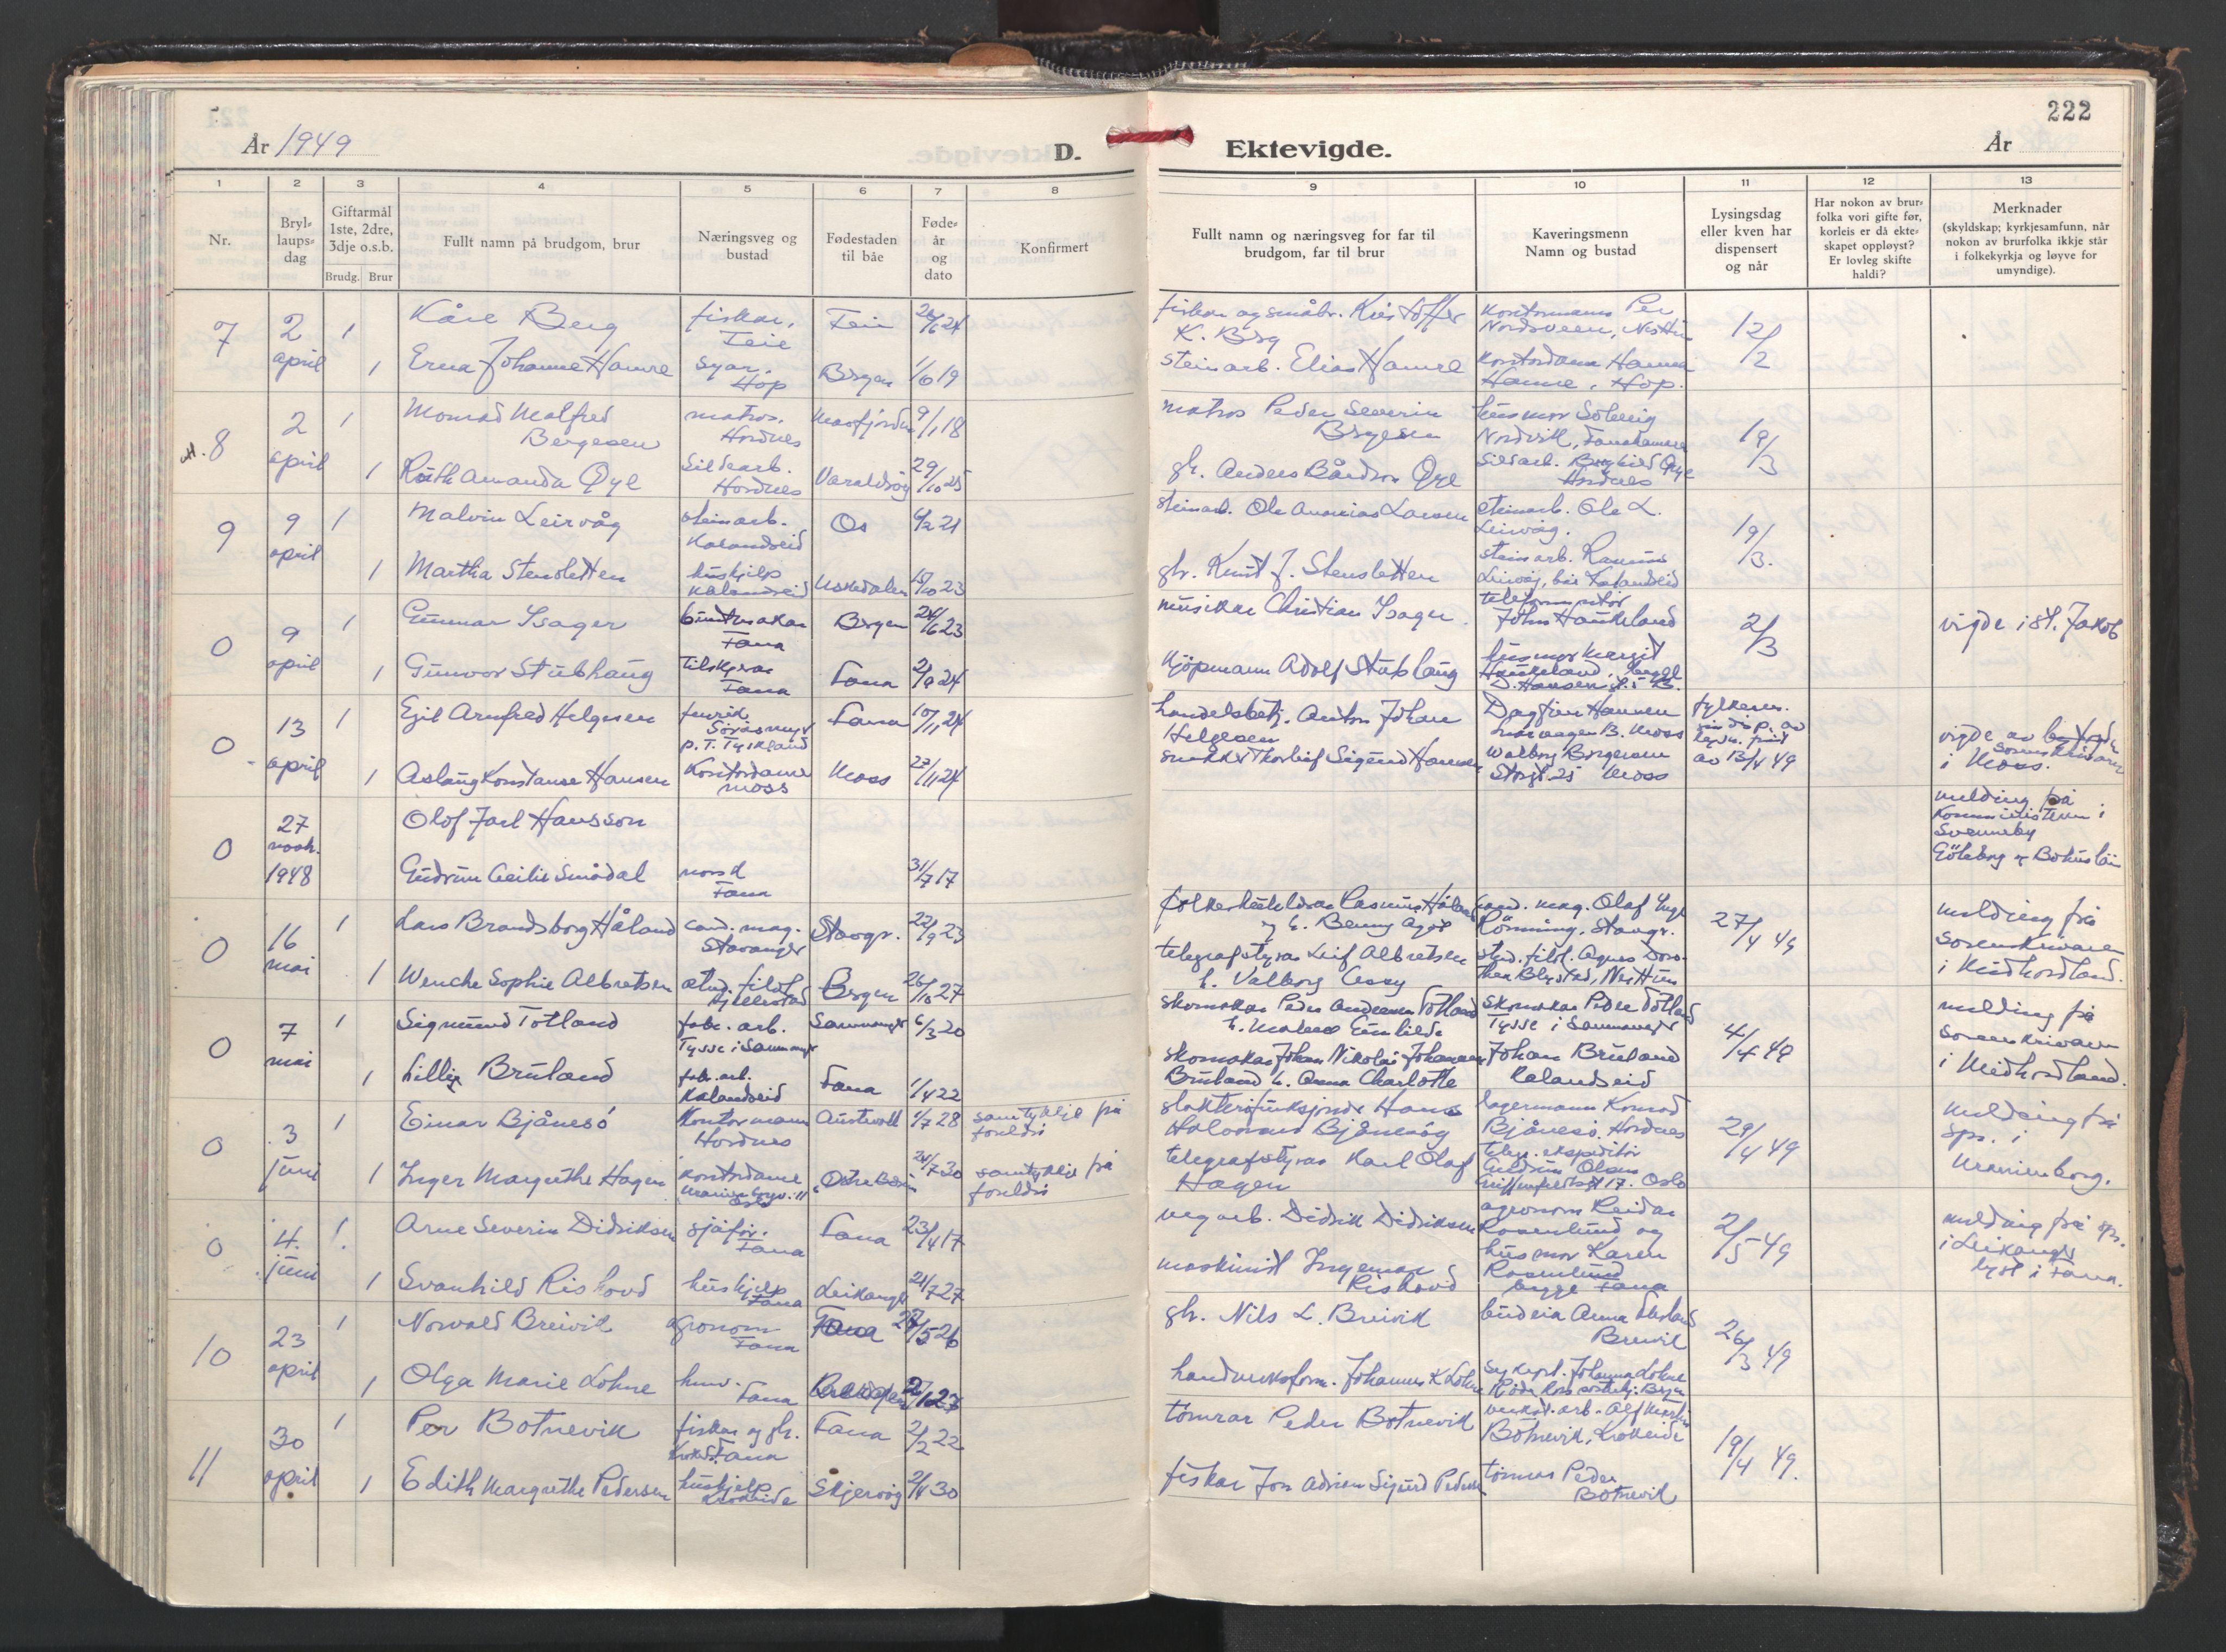 222
År 1949
D.
Ektevigde.
År
1 2 3 4 5 6 7 8 9 10 11 12 13
Nr.
Bryl-
laups-
dag
Giftarmål
1ste, 2dre,
3dje o.s.b.
Brudg. Brur
Fullt namn på brudgom, brur
Næringsveg og
bustad
Fødestaden
til båe
Føde-
år
og
dato
Konfirmert
Fullt namn og næringsveg for far til
brudgom, far til brur
Kaveringsmenn
Namn og bustad
Lysingsdag
eller kven har
dispensert
og når
Har nokon av brur-
folka vori gifte før,
korleis er då ekte-
skapet oppløyst?
Er lovleg skifte
haldi?
Merknader
(skyldskap; kyrkjesamfunn, når
nokon av brurfolka ikkje står
i folkekyrkja og løyve for
umyndige).
7
2
april
1
Kåre Berg
fiskar,
Teie
fiskar og småbr. Kristoffer
K. Berg
kontormann Per
12/2
1
Erna Johanne Hamre
syar.
Hop
Bergen
1/6 19
steinarb. Elias Hamre
kontordama Hanna
Hamre, Hop.
8
2
april
1
Monrad Malfred
Bergesen
matros.
Hordnes
Masfjorden
9/1 18
matros Peder Severin
Bergesen
husmor Solveig
Nordvik, Fanahamren
19/3
1
Ruth Amanda Øye
sildearb.
Hordnes
Varaldsøy
29/10 25
gb. Anders Bårdson Øye
sildarb. Borghild Øye
Hordnes
9
9
april
1
Malvin Leirvåg
steinarb.
Kalandseid
Os
6/2 21
steinarb. Ole Ananias Larsen
steinarb. Ole L.
Leirvåg.
19/3.
1
Martha Stensletten
hushjelp
Kalandseid
Uskedalen
15/10 23
gb. Knut J. Stensletten
steinarb. Rasmus
Leirvåg, bæ Kalandseid
0
9
april
1
Gunnar Isager
buntmakar
Fana
Bergen
24/6 23
musikar Christian Isager.
John Haukeland
2/3
vigde i St. Jakob
1
Gunvor Stubhaug
tilskjerar
Fana
Fana
2/9 24
kjøpmann Adolf Stubhaug
husmor Margit
Haukeland,
0
13
april
1
Egil Arnfred Helgesen
fenrik.
p.t. Tyskland
Fana
10/11 24
handelsbetj. Anton Johan
Helgesen
Dagfinn Hansen
Moss
av 13/4 49
vigde av
sorenskrivaren
i Moss.
1
Aslaug Konstanse Hansen
Kontordame
Moss
Moss
27/11 24
snekker Thorleif Sigurd Hansen
Walborg Borgersen
Storgt. 25 Moss
0
27
novb.
1948
Olof Jarl Hansson
melding frå
Komministeren i
Svenneby
Göteborg og Bohuslän
Gudrun Cecilie Smådal
norsk
Fana
31/7 17
0
16
mai
1
Lars Brandsborg Håland
cand. mag.
Stavanger
Stavgr.
22/9 23
folkeskulelærar Rasmus Håland
cand. mag. Olaf Inge
Rönning, Stavgr.
27/4 49
melding frå
sorenskrivaren
i Midhordland.
1
Wenche Sophie Albretsen
stud. filol.
Bergen
26/10 27
telegrafstyrar Leif Albretsen
stud. filol. Agnes Doro-
thea Blystad, Nesttun
0
7
mai
1
Sigmund Totland
fabr. arb.
Tysse i Samnanger
Samnanger
6/3 20
skomakar Peder Andersen Totland
skomakar Peder Totland
Tysse i Samnanger
4/4 49
melding frå
sorenskrivaren
i Midhordland.
1
Lilly Bruland
fabr. arb.
Kalandseid
Fana
1/4 22
skomakar Johan Nikolai Johannesen
Bruland h. Anna Charlotte
Johan Bruland
Kalandseid
0
3
juni
1
Einar Bjånesö
Kontormann
Hordnes
Austevoll
1/7 28
samtykkje frå
foreldre
Bjånesöy
lagermann Konrad
Bjånesö, Hordnes
29/4 49
melding frå
spr. i
Uranienborg.
1
Inger Margrethe Hagen
kontordame
Oslo
24/7 30
samtykkje frå
foreldre
telegrafstyrar Karl Olaf
Hagen
telegr. ekspeditør
Gudrun Olsen
Oslo
0
4.
juni
1.
Arne Severin Didriksen
sjåfør.
Fana
Fana
23/4 17
vegarb. Didrik Didriksen
agronom Reidar
Rosenlund og
2/5 49
melding frå spr.
i Leikanger
lyst i Fana.
1
Svanhild Rishovd
hushjelp
Fana
Leikanger
21/7 27
maskinist Ingemar
Rishovd
husmor Karen
Rosenlund
begge Fana
10
23
april
1
Norvald Breivik
agronom
Fana
Fana
27/5 26
gb. Nils L. Breivik
budeia Anna
Breivik
26/3 49
1
Olga Marie Lohne
husv.
Fana
2/1 27
handverksform. Johannes K Lohne
sykepl. Johanna Lohne
11
30
april
1
Per Botnevik
fiskar og gb.
Fana
Fana
2/2 22
tömrar Peder Botnevik
verkst. arb. Alf Martin
Botnevik, Krokeide
19/4 49.
1
Edith Margrethe Pedersen
hushjelp
Krokeide
Skjervöy
2/4 30
fiskar Jon Adrian Sigurd Pedersen
tömrar Peder
Botnevik